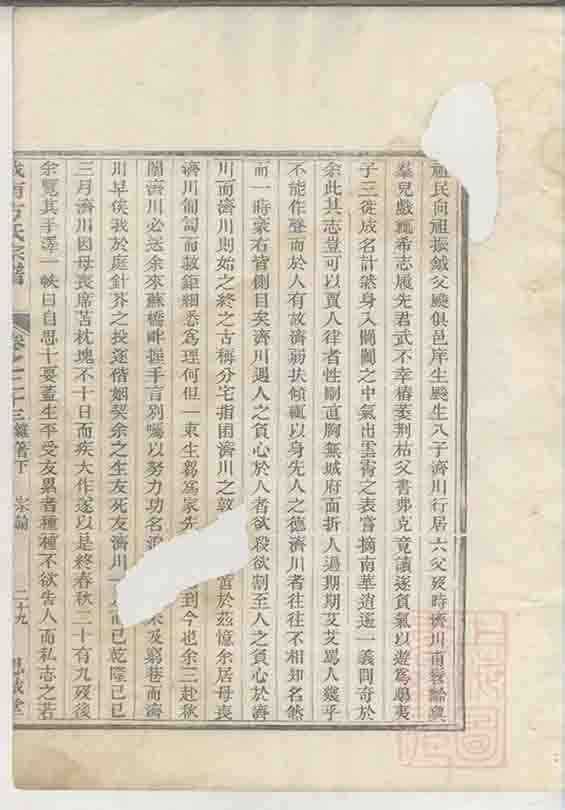 祖民向祖振鉞父颷俱邑庠生颷生八子濟川行居六父歿時濟川甫髫齡與
羣兒戲輒希志履先君武不幸椿萎荆枯父書弗克竟讀遂負氣以遊爲鴟夷
子三徙成名計然身入闤闠之中氣出雲霄之表嘗摘南華逍遙一義問奇於
余此其志豈可以賈人律者性剛直胸無城府面折人過期期艾艾罵人幾乎
不能作聲而於人有故濟弱扶傾輒以身先人之德濟川者往往不相知名然
而一時豪右皆側目矣濟川遇人之負心於人者欲殺欲割至人之負心於濟
川而濟川則始之終之古稱分宅指囷濟川之敦 於茲憶余居母喪
濟川匍匐而救鉅細悉爲理何但一束生芻爲家先 到今也余三赴秋
闈濟川必送余來蘇橋畔握手言別囑以努力功名 及窮巷而濟
川早俟我於庭針芥之投遂偕姻契余之生友死友濟川 而已乾隆己巳
三月濟川因母喪席苫枕塊不十日而疾大作遂以是終春秋三十有九歿後
余覽其手澤一帙曰自思十要蓋生平受友累者種種不欲告人而私志之若
南方氏宗譜 卷之二十三雜著下 宗論 二十九 思誠堂